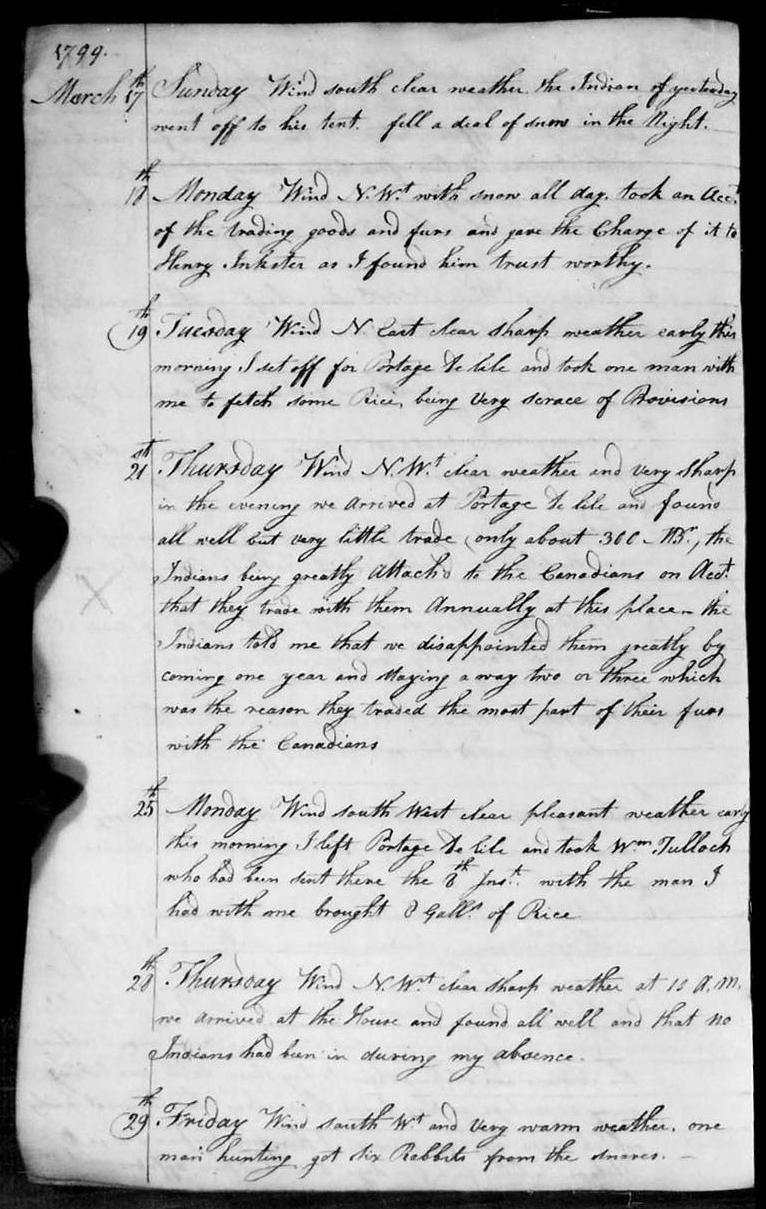 1799.
March 17th Sunday Wind south clear weather. the Indian of yesterday
went off to his tent. fell a deal of snow in the Night.
18th Monday Wind N.Wt with snow all day. took an Acct
of the trading goods and furs and gave the Charge of it to
Henry Inkster as I found him trust worthy.
19th Tuesday Wind N. East clear sharp weather early this
morning I set off for Portage De lile and took one man with
me to fetch some Rice, being Very scrace of Provisions
21st Thursday Wind N.Wt clear weather and very sharp
in the evening we arrived at Portage De lile and found
all well but very little trade (only about 300 MBr, the
Indians being greatly Attach'd to the Canadians on Acct
that they trade with them Annually at this place – the
Indians told me that we disappointed them greatly by
coming one year and staying a way two or three which
was the reason they traded the most part of their furs
with the Canadians
25th Monday Wind south West clear pleasant weather early
this morning I left Portage De lile and took Wm Tulloch
who had been sent there the 8th Inst. with the man I
had with me brought 8 Galls of Rice
28th Thursday Wind N.Wt clear sharp weather at 10 A.M.
we arrived at the House and found all well and that no
Indians had been in during my absence.
29th Friday Wind south Wt and Very warm weather. one
man hunting got six Rabbits from the snares. –